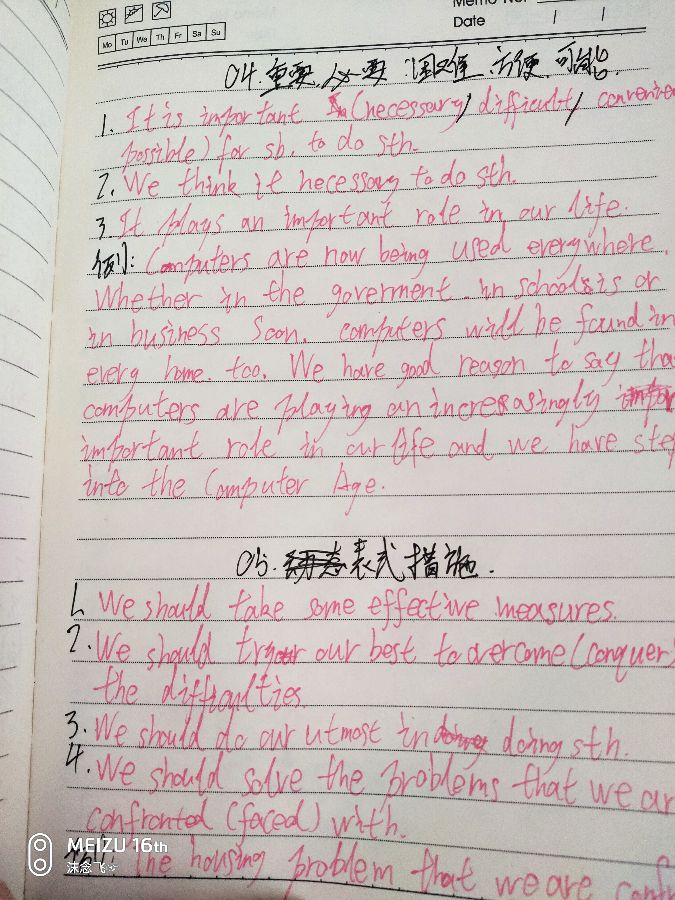 Memo No.
Mo Tu We Th Fr Sa Su
Date
04.重要.必要.困难.方便.可能.
1. It is important (necessary, difficult, convenien
possible) for sb. to do sth.
2. We think it necessary to do sth.
3. It plays an important role in our life.
例: Computers are now being used everywhere.
Whether in the goverment. in schools is or
in business Soon. computers will be found in
every home. too. We have good reason to say tha
computers are playing an increasingly
important role in our life and we have step
into the Computer Age.
05. 表式措施.
1. We should take some effective measures.
2. We should try our best to overcome (conquer)
the difficulties
3. We should do our utmost in doing sth.
4. We should solve the problems that we ar
confronted (faced) with.
The housing problem that we are conf
MEIZU 16th
沫念飞